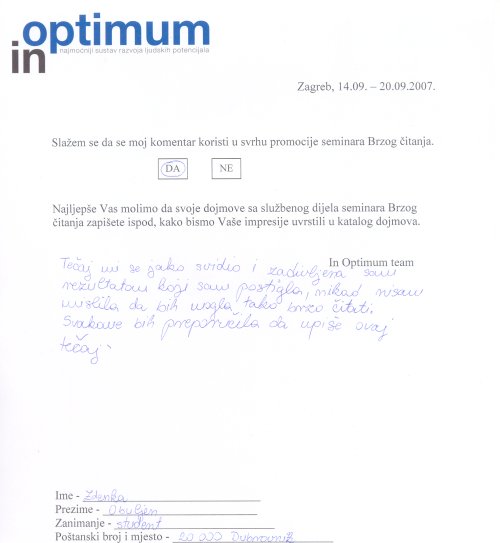 in optimum
najmoćniji sustav razvoja ljudskih potencijala
Zagreb, 14.09. – 20.09.2007.
Slažem se da se moj komentar koristi u svrhu promocije seminara Brzog čitanja.
DA NE
Najljepše Vas molimo da svoje dojmove sa službenog dijela seminara Brzog
čitanja zapišete ispod, kako bismo Vaše impresije uvrstili u katalog dojmova.
In Optimum team
Tečaj mi se jako svidio i zadivljena sam
rezultatom koji sam postigla, nikad nisam
mislila da bih mogla tako brzo čitati.
Svakome bih preporučila da upiše ovaj
tečaj.
Ime - Zdenka
Prezime - Obuljen
Zanimanje - student
Poštanski broj i mjesto - 20 000 Dubrovnik